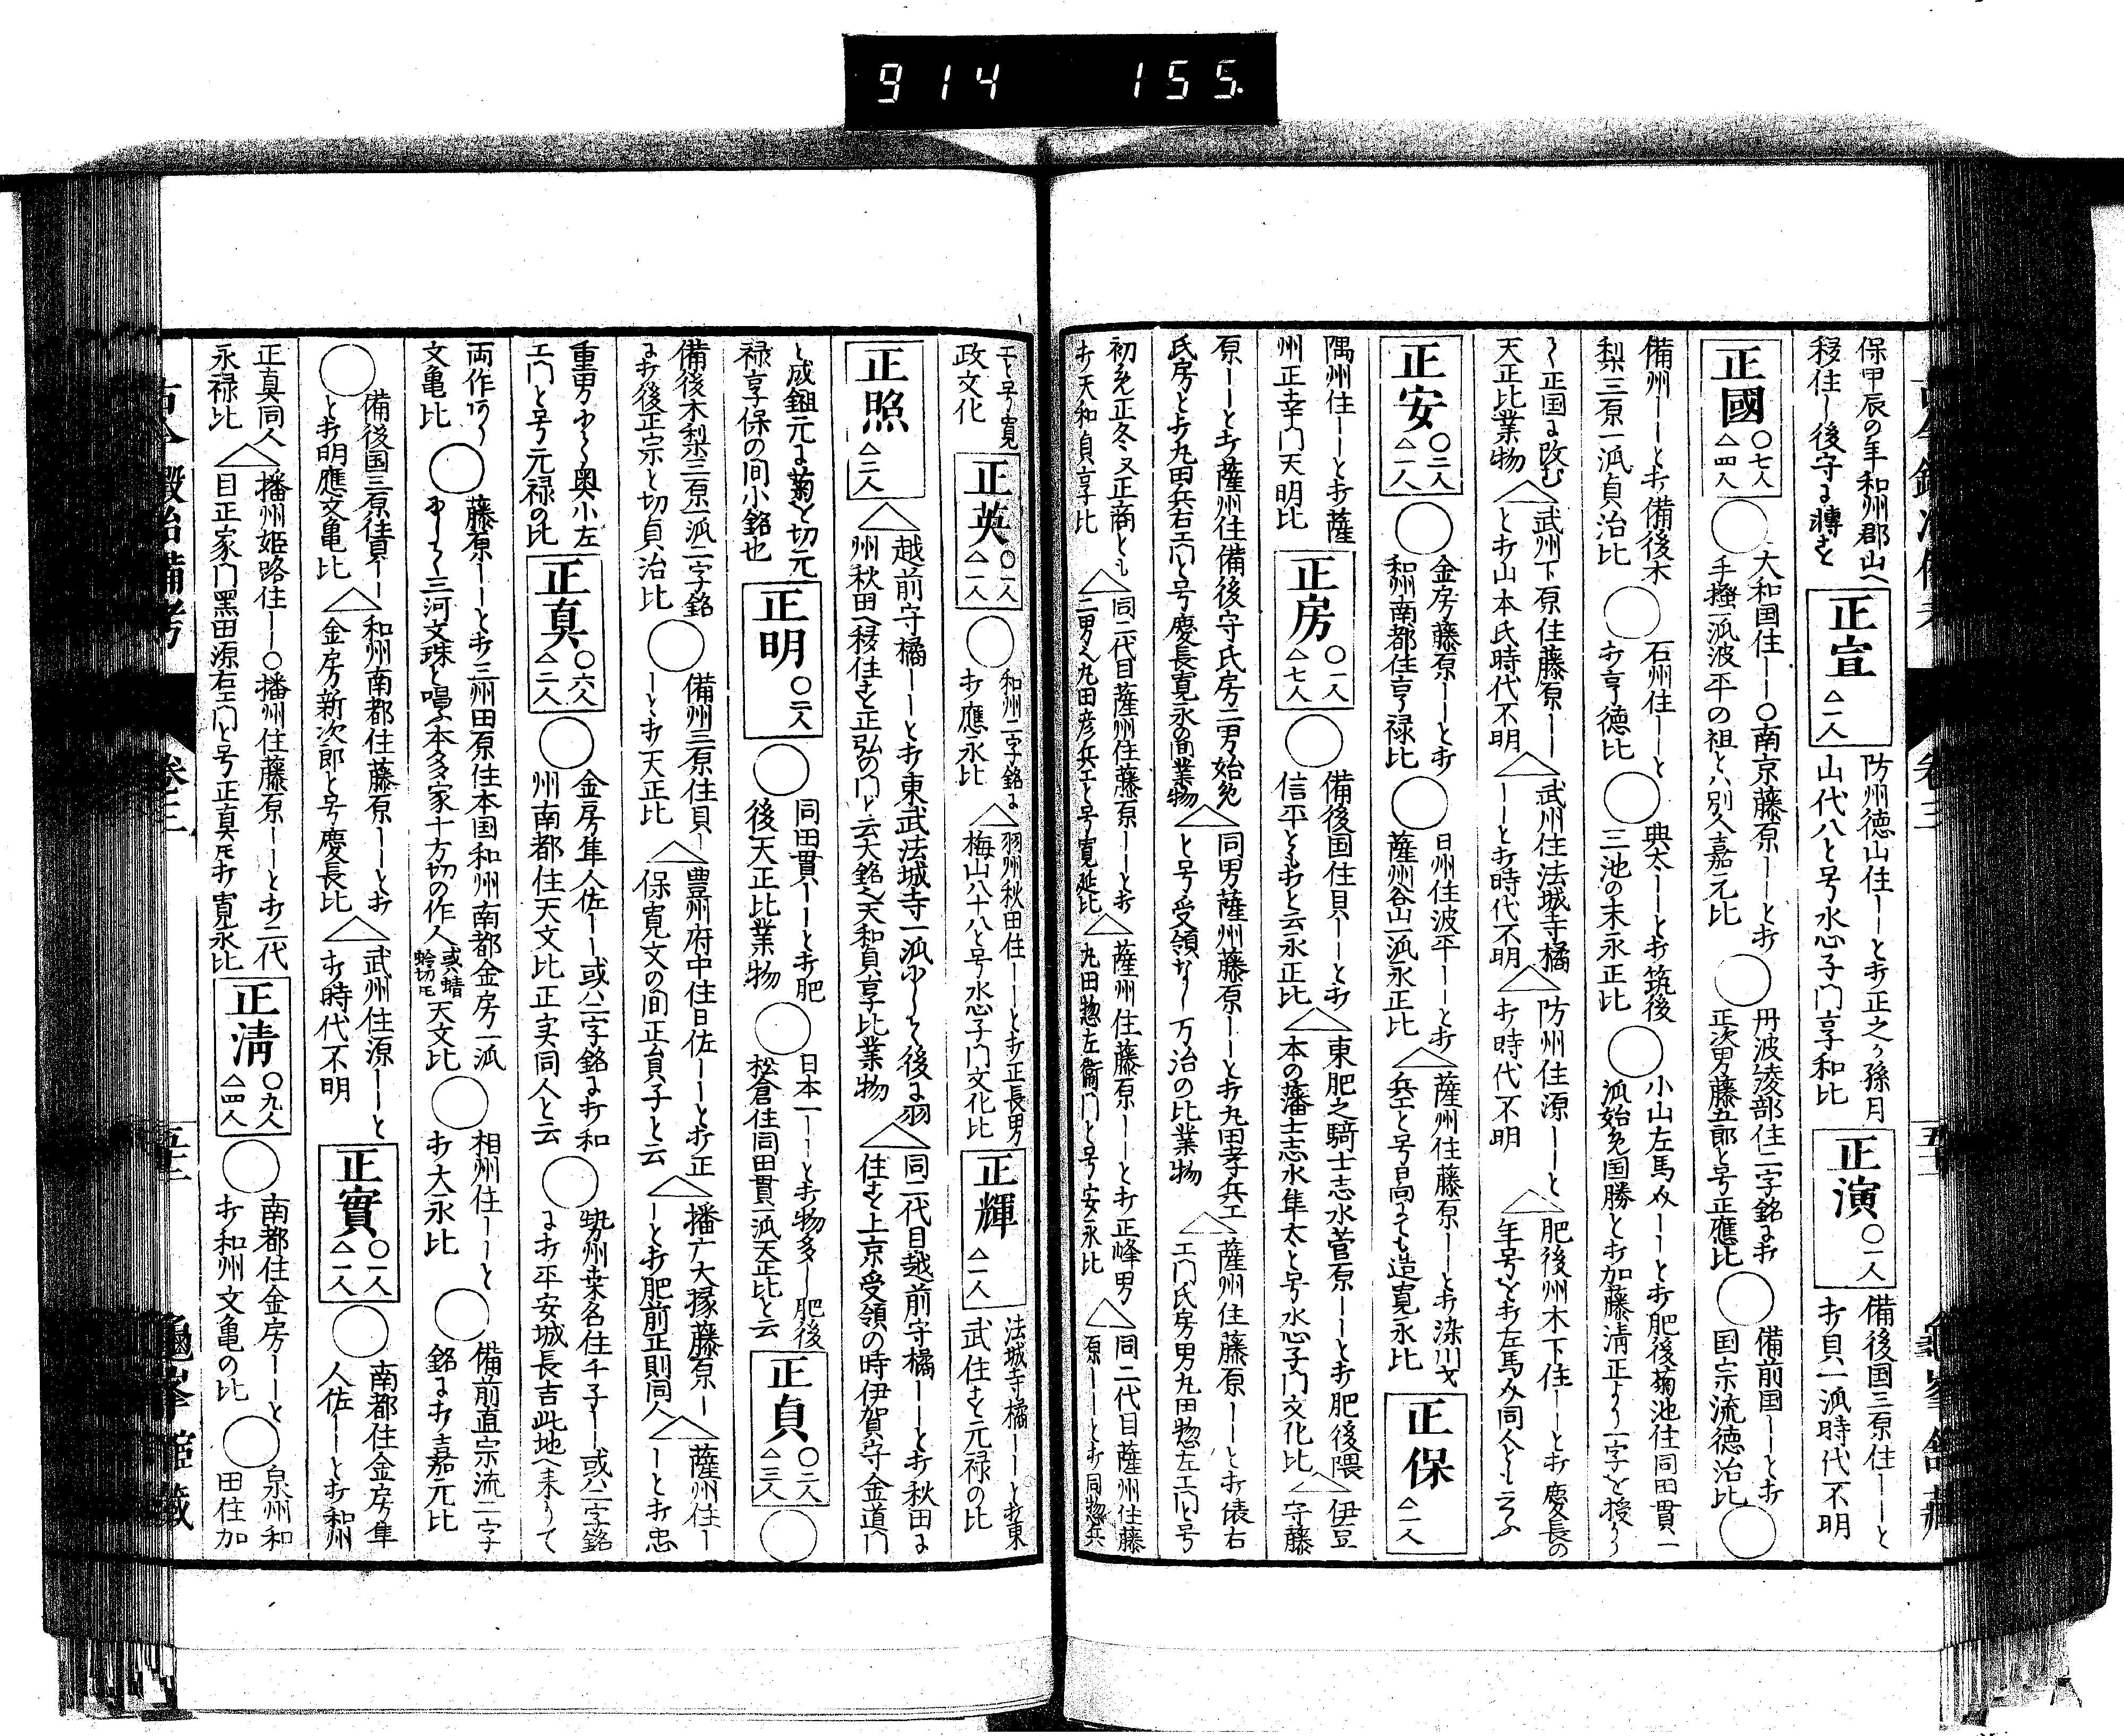 914 155.
保甲辰の年和州郡山へ
移住ー後守よ轉を
正宣 △一人
防州徳山住ーーとオ正之ヶ孫月
山代八と号水心子門享和比
正演 〇一人
備後国三原住ーーと
オ貝一派時代不明
正國 〇七人 △四人
〇大和国住ーー〇南京藤原ーーとオ
手掻一派波平の祖とハ別人嘉元比
〇丹波綾部住二字銘よオ
正次男藤五郎と号正應比
〇備前国ーーとオ
国宗流徳治比
〇備州ーーとオ備後木
梨三原一派貞治比
〇石州住ーーと
オ亨徳比
〇典太ーーとオ筑後
三池の末永正比
〇小山左馬介ーーとオ肥後菊池住同田貫一
派始免国勝とオ加藤清正より一字を授り
て正国よ改む
天正比業物
△武州下原住藤原ーー
とオ山本氏時代不明
△武州住法城寺橘
ーーとオ時代不明
△防州住源ーーと
オ時代不明
△肥後州木下住ーーとオ慶長の
年号をオ左馬介同人と云ふ
正安 〇二人 △一人
〇金房藤原ーーとオ
和州南都住亨禄比
〇日州住波平ーーとオ
薩州谷山一派永正比
△薩州住藤原ーーとオ染川
兵エと号昌ても造寛永比
正保 △一人
隅州住ーーとオ薩
州正幸門天明比
正房 〇一人 △七人
〇備後国住貝ーーとオ
信平ともオと云永正比
△東肥之騎士志水菅原ーーとオ肥後隈
本の藩士志水隼太と号水心子門文化比
△伊豆
守藤
原ーーとオ薩州住備後守氏房二男始免
氏房とオ丸田兵右エ門と号慶長寛永の間業物
△同男薩州藤原ーーとオ丸田孝兵エ
と号受領なー万治の比業物
△薩州住藤原ーーとオ俵右
エ門氏房男丸田惣左エ門と号
初免正冬又正商とも
オ天和貞享比
△同二代目薩州住藤原ーーとオ
二男へ丸田彦兵エと号寛延比
△薩州住藤原ーーとオ正峰男
丸田惣左衛門と号安永比
△同二代目薩州住藤
原ーーとオ同惣兵
エと号寛
政文化
正英 〇一人 △一人
〇和州二字銘よ
オ應永比
△羽州秋田住ーーとオ正長男
梅山八十八と号水心子門文化比
正輝 △一人
法城寺橘ーーとオ東
武住す元禄の比
正照 △二人
△越前守橘ーーとオ東武法城寺一派ゆーて後よ羽
州秋田へ移住を正弘の門と云大銘へ天和貞享比業物
△同二代目越前守橘ーーとオ秋田よ
住を上京受領の時伊賀守金道門
と成鉏元よ菊を切元
禄享保の間小銘也
正明 〇二人
〇同田貫ーーとオ肥
後天正比業物
〇日本一ーーとオ物多ー肥後
松倉住同田貫一派天正比と云
正貞 〇二人 △三人
〇備後木梨三原一派二字銘
よオ後正宗と切貞治比
〇備州三原住貝ー
ーとオ天正比
△豊州府中住日佐ーーとオ正
保寛文の間正貟子と云
△播广大掾藤原ー
ーとオ肥前正則同人
△薩州住ー
ーとオ忠
重男ゆーて奥小左
エ門と号元禄の比
正真 〇六人 △二人
〇金房隼人佐ーー或ハ二字銘よオ和
州南都住天文比正実同人と云
〇勢州桒名住千子ーー或ハ二字銘
よオ平安城長吉此地へ来りて
両作アリ
文亀比
〇藤原ーーとオ三州田原住本国和州南都金房一派
ゆーて三河文珠と唱本多家十方切の作人 或蜻蛉切モ 天文比
〇相州住ーーと
オ大永比
〇備前直宗流二字
銘よオ嘉元比
〇備後国三原住貝ー
とオ明應文亀比
△和州南都住藤原ーーとオ
金房新次郎と号慶長比
△武州住源ーーと
オ時代不明
正實 〇一人 △一人
〇南都住金房隼
人佐ーーとオ和州
正真同人
永禄比
△播州姫路住ーー〇播州住藤原ーーとオ二代
目正家門黒田源右エ門と号正真モオ寛永比
正淸 〇九人 △四人
〇南都住金房ーーと
オ和州文亀の比
〇泉州和
田住加
古今鍛冶備考 巻三